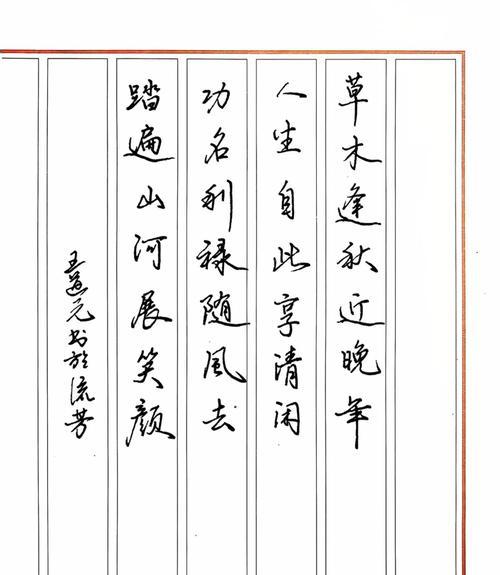 草木逢秋近晚年
人生自此享清闲
功名利禄随風去
踏遍山河展笑颜
王道元书於流芳